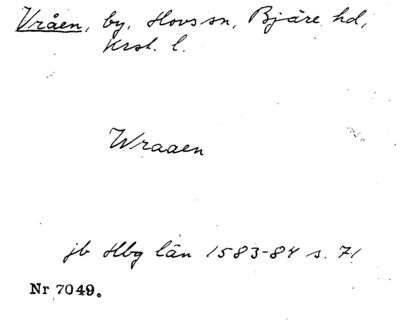 Vråen, by, Hovs sn, Bjäre hd,
Krst. l.
Wraaen
jb Hbg län 1583-84 s. 71
Nr 7049.